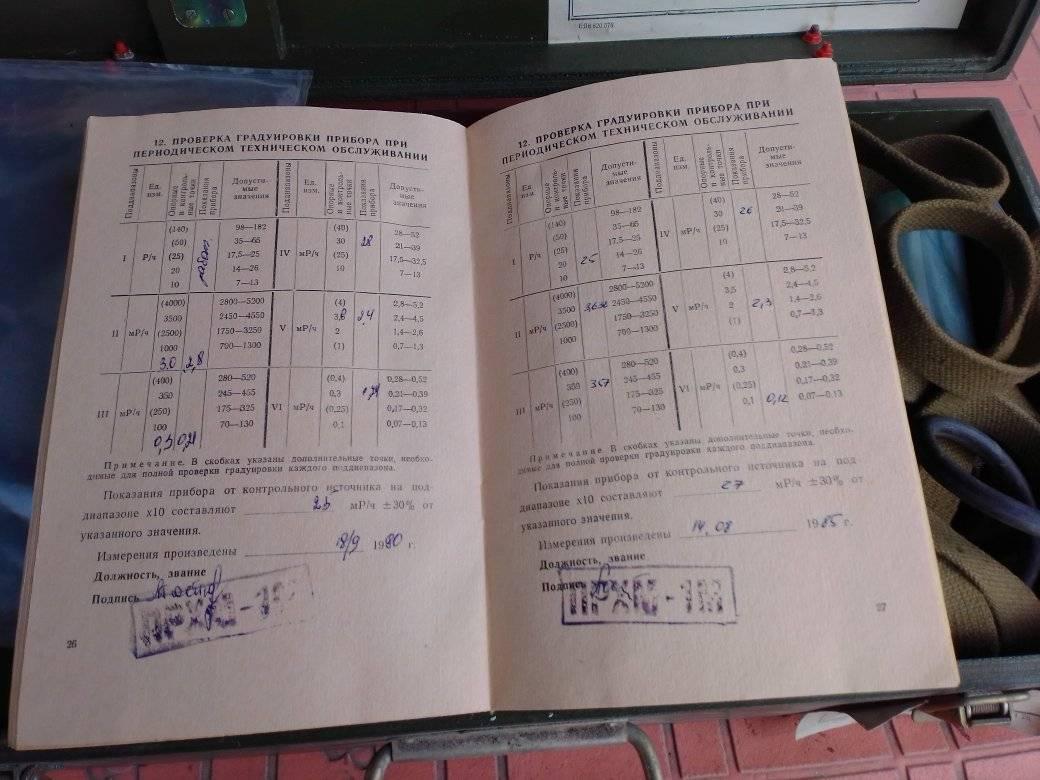 12. ПРОВЕРКА ГРАДУИРОВКИ ПРИБОРА ПРИ
ПЕРИОДИЧЕСКОМ ТЕХНИЧЕСКОМ ОБСЛУЖИВАНИИ
Поддиапазоны Ед. изм. Опорные и контрольные точки Показания прибора Допустимые значения Поддиапазоны Ед. изм. Опорные и контрольные точки Показания прибора Допустимые значения
(140) 98—182 (40) 28—52
(50) 35—65 30 28 21—39
I Р/ч (25) 17,5—25 IV мР/ч (25) 17,5—32,5
20 14—26 10 7—13
10 7—13
(4000) 2800—5200 (4) 2,8—5,2
3500 2450—4550 2,4 2,4—4,5
II мР/ч (2500) 1750—3250 V мР/ч 2 1,4—2,6
1000 700—1300 (1) 0,7—1,3
3.0 2,8
(400) 280—520 (0,4) 0,28—0,52
350 245—455 0,3 0,21—0,39
III мР/ч (250) 175—325 VI мР/ч (0,25) 0,17—0,32
100 70—130 0,1 0,07—0,13
0,3
Примечание. В скобках указаны дополнительные точки, необхо-
димые для полной проверки градуировки каждого поддиапазона.
Показания прибора от контрольного источника на под-
диапазоне х10 составляют 25 мР/ч ±30% от
указанного значения.
Измерения произведены 18/9 1980 г.
Должность, звание
Подпись
ПРХМ-1М
26
12. ПРОВЕРКА ГРАДУИРОВКИ ПРИБОРА ПРИ
ПЕРИОДИЧЕСКОМ ТЕХНИЧЕСКОМ ОБСЛУЖИВАНИИ
Поддиапазоны Ед. изм. Опорные и контрольные точки Показания прибора Допустимые значения Поддиапазоны Ед. изм. Опорные и контрольные точки Показания прибора Допустимые значения
(140) 98—182 (40) 28—52
(50) 35—65 30 26 21—39
I Р/ч (25) 17,5—25 IV мР/ч (25) 17,5—32,5
20 25 14—26 10 7—13
10 7—13
(4000) 2800—5200 (4) 2,8—5,2
3500 2450—4550 3,5 2,4—4,5
II мР/ч (2500) 1750—3250 V мР/ч 2 2,3 1,4—2,6
1000 700—1300 (1) 0,7—1,3
(400) 280—520 (0,4) 0,28—0,52
350 357 245—455 0,3 0,21—0,39
III мР/ч (250) 175—325 VI мР/ч (0,25) 0,17—0,32
100 70—130 0,1 0,12 0,07—0,13
Примечание. В скобках указаны дополнительные точки, необхо-
димые для полной проверки градуировки каждого поддиапазона.
Показания прибора от контрольного источника на под-
диапазоне х10 составляют 27 мР/ч ±30% от
указанного значения.
Измерения произведены 14.08 1985 г.
Должность, звание
Подпись
ПРХМ-1М
27